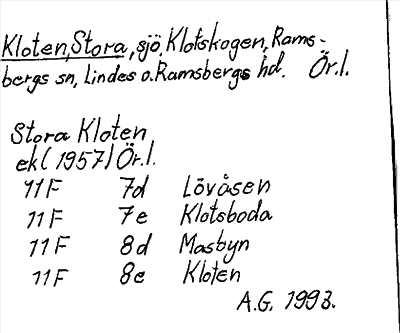 Kloten, Stora, sjö, Klotskogen, Rams-
bergs sn, Lindes o. Ramsbergs hd. Ör.l.
Stora Kloten
ek (1957) Ör.l.
11F 7d Lövåsen
11F 7e Klotsboda
11F 8d Masbyn
11F 8e Kloten
A.G. 1993.